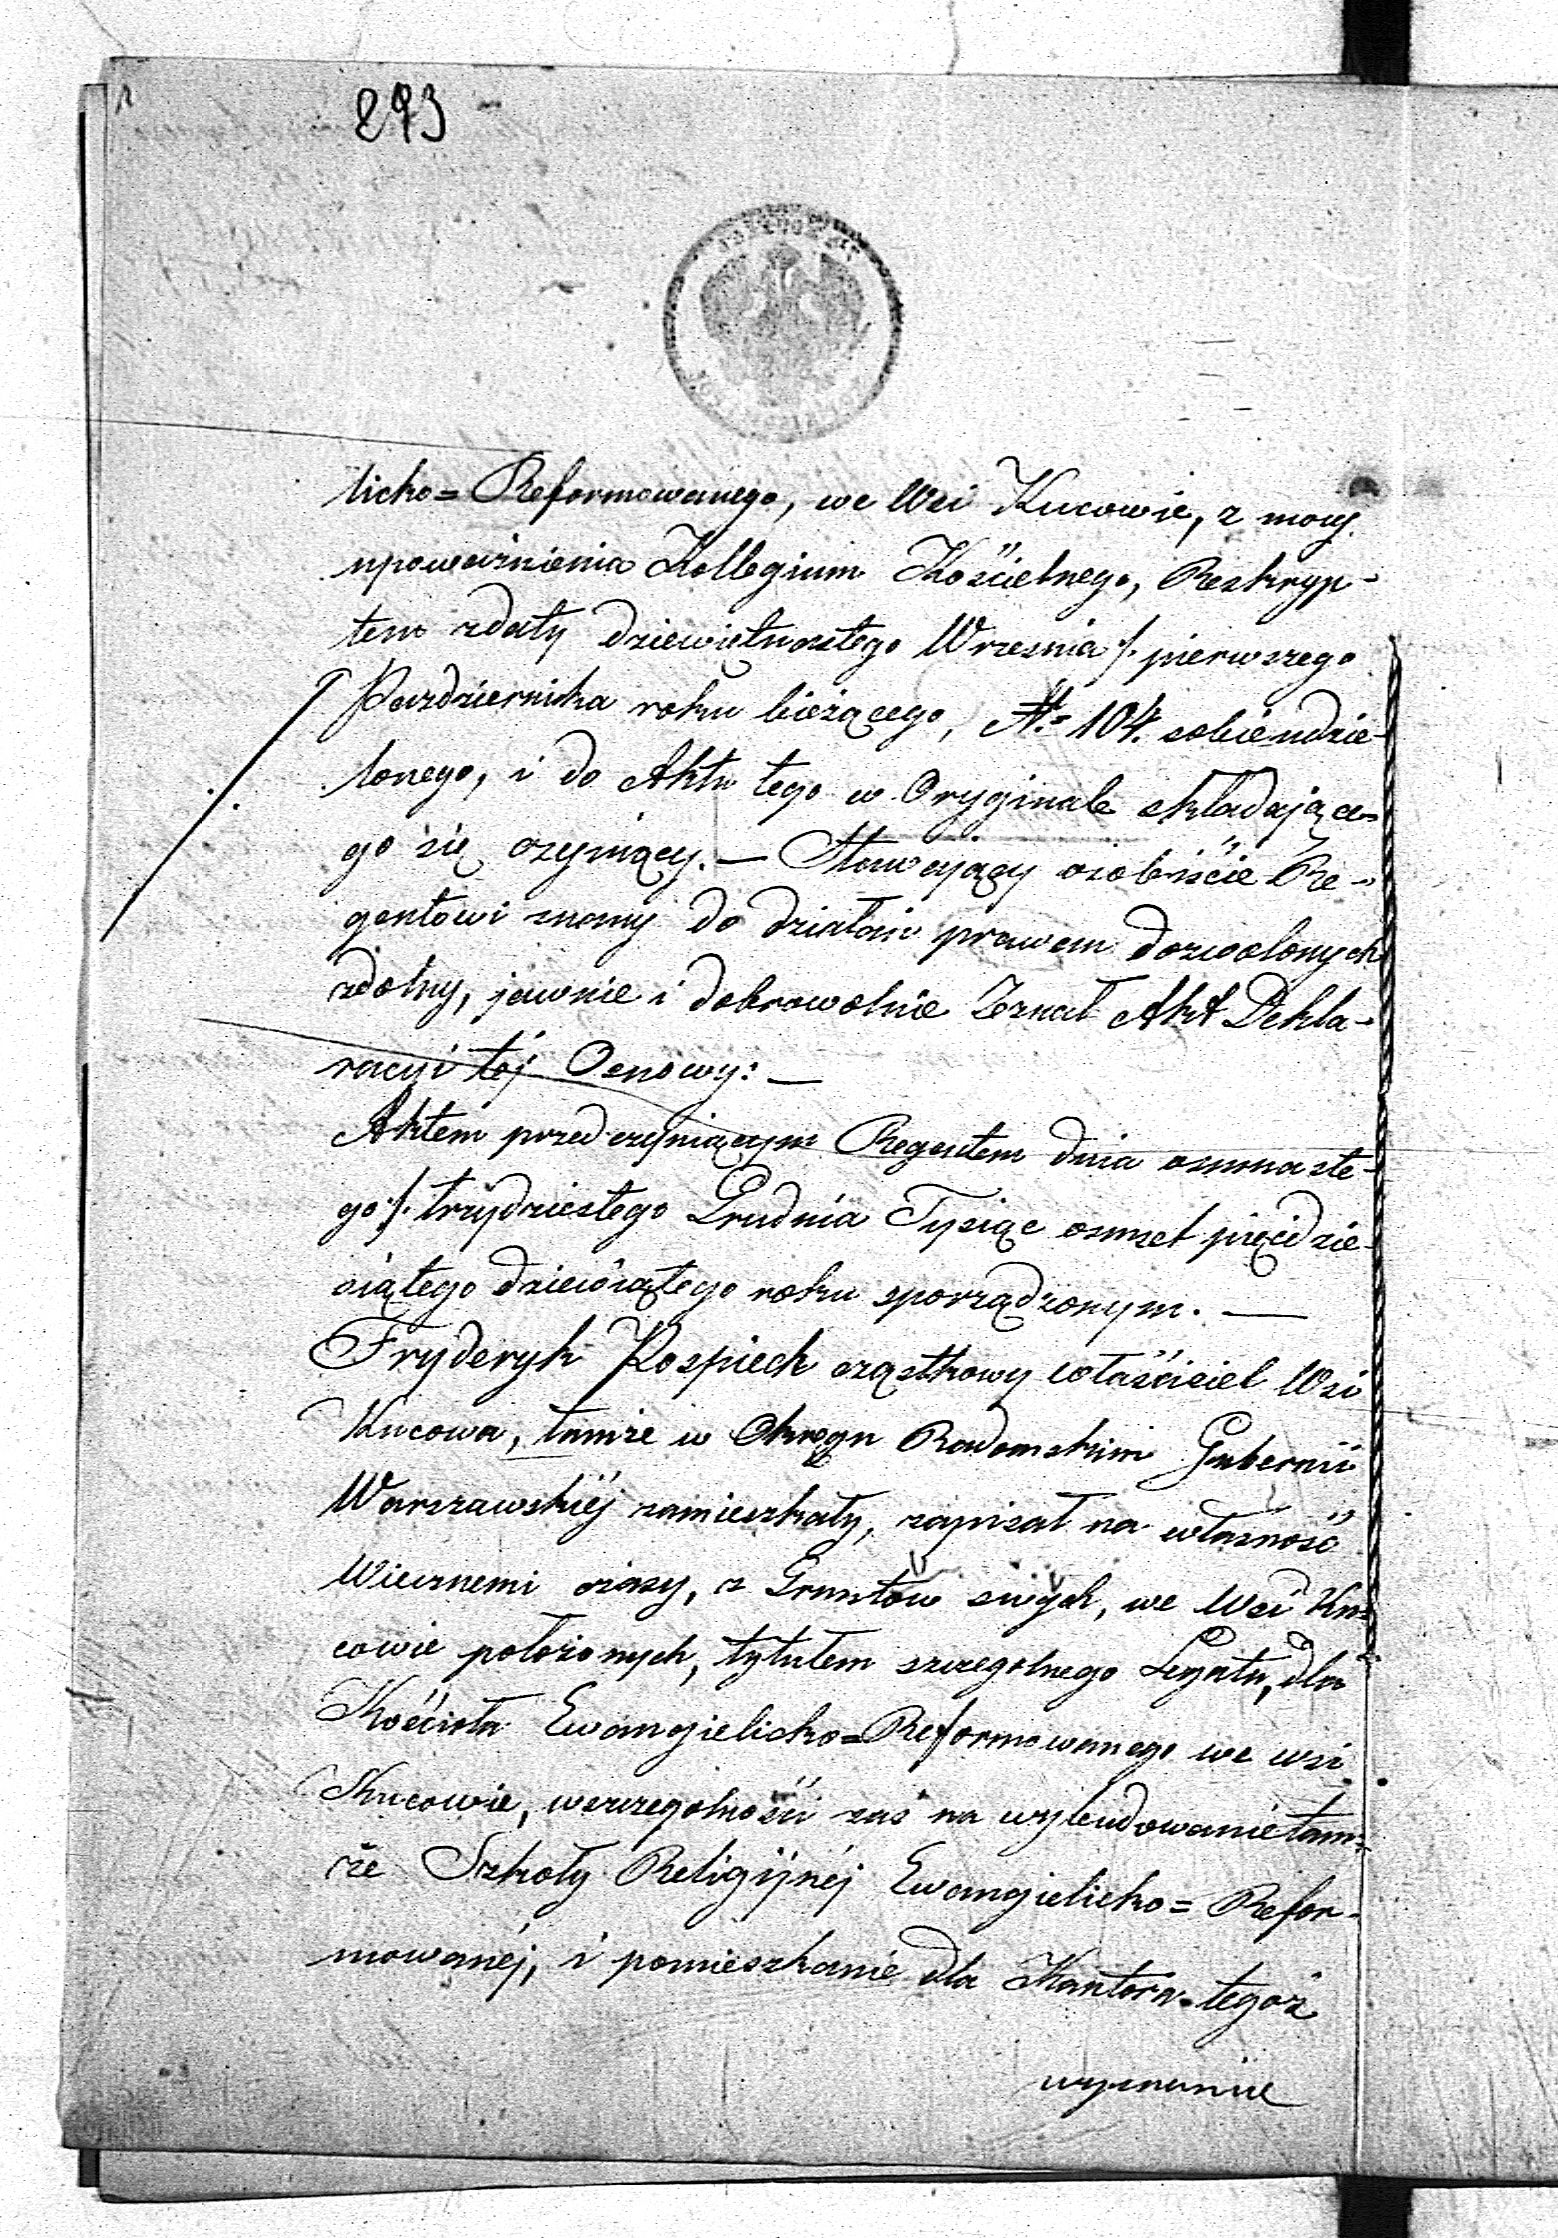 293
licko=Reformowanego, we Wsi Kucowie, z mocy
upoważnienia Kollegium Kościelnego, Reskryp-
tem zdaty dziewiętnastego Września /. pierwszego
Października roku bieżącego, N.= 104. sobie udzie-
lonego, i do Aktu tego w Oryginale składające-
go się czyniący. — Stawający osobiście Re-
gentowi znany do działań prawem dozwolonych
zdolny, jawnie i dobrowolnie Zeznał Akt Dekla-
racyi téj Osnowy: —
Aktem przed czyniącym Regentem dnia osmnaste-
go /. trzydziestego Grudnia Tysiąc osmset pięćdzie-
siątego dziewiątego roku sporządzonym. —
Fryderyk Pospiech cząstkowy właściciel Wsi
Kucowa, tamże w Okręgu Radomskim Gubernii
Warszawskiéj zamieszkały, zapisał na własność
Wiecznemi czasy, z Gruntów swych, we Wsi Ku-
cowie położonych, tytułem szczegolnego Legatu, dla
Kościoła Ewangielicko=Reformowanego we wsi
Kucowie, wszczegolności zaś na wybudowanie tam-
że Szkoły Religijnéj Ewangielicko=Refor-
mowanéj, i pomieszkanie dla Kantora tegoż
wyznania